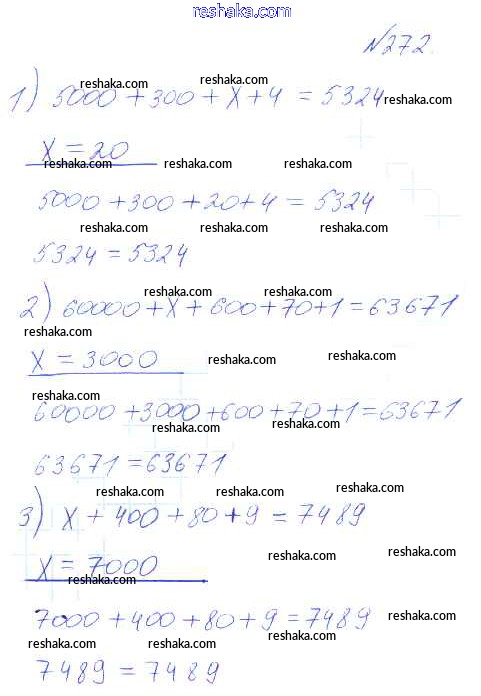 reshaka.com
№272.
1) 5000 + 300 + x + 4 = 5324
reshaka.com reshaka.com reshaka.com
x = 20
reshaka.com reshaka.com reshaka.com
5000 + 300 + 20 + 4 = 5324
reshaka.com reshaka.com reshaka.com
5324 = 5324
reshaka.com reshaka.com
2) 60000 + x + 600 + 70 + 1 = 63671
reshaka.com
x = 3000
reshaka.com reshaka.com
reshaka.com
60000 + 3000 + 600 + 70 + 1 = 63671
reshaka.com reshaka.com
63671 = 63671
reshaka.com reshaka.com reshaka.com
3) x + 400 + 80 + 9 = 7489
x = 7000
reshaka.com reshaka.com
7000 + 400 + 80 + 9 = 7489
reshaka.com reshaka.com reshaka.com reshaka.com
7489 = 7489